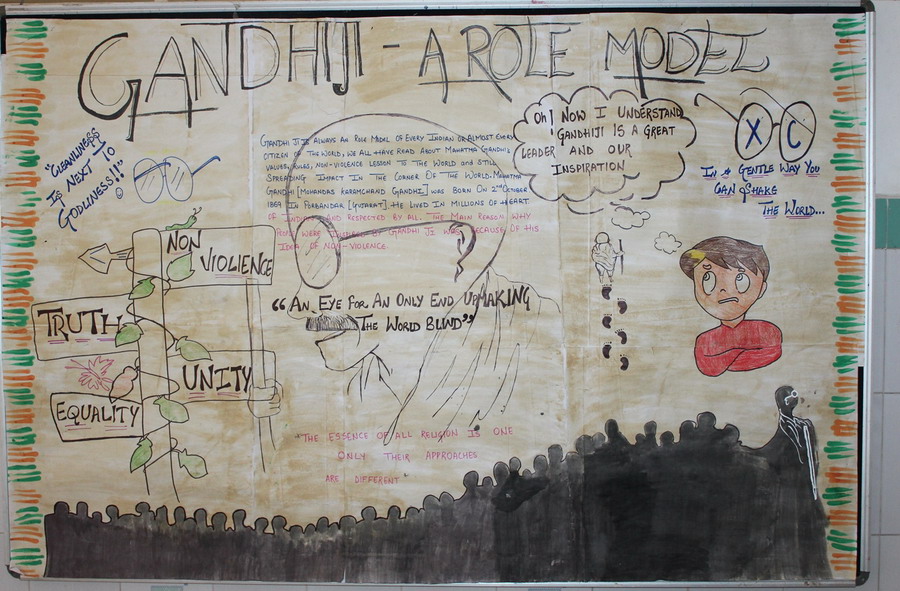 GANDHIJI - A ROLE MODEL
"CLEANLINESS
IS NEXT TO
GODLINESS!!"
GANDHI JI IS ALWAYS AN ROLE MODAL OF EVERY INDIAN OR ALMOST EVERY
CITIZEN OF THE WORLD, WE ALL HAVE READ ABOUT MAHATMA GANDHI
VALUES, RULES, NON-VIOLENCE LESSON TO THE WORLD AND STILL
SPREADING IMPACT IN THE CORNER OF THE WORLD. MAHATMA
GANDHI [MOHANDAS KARAMCHAND GANDHI] WAS BORN ON 2ND OCTOBER
1869 IN PORBANDAR [GUJARAT]. HE LIVED IN MILLIONS OF HEART
OF INDIANS AND RESPECTED BY ALL. THE MAIN REASON WHY
PEOPLE WERE BY GANDHI JI WAS BECAUSE OF HIS
IDEA OF NON-VIOLENCE.
Oh! NOW I UNDERSTAND
GANDHIJI IS A GREAT
LEADER AND OUR
INSPIRATION
X C
IN A GENTLE WAY YOU
CAN SHAKE
THE WORLD...
NON
VIOLIENCE
TRUTH
UNITY
EQUALITY
"AN EYE FOR AN ONLY END UP MAKING
THE WORLD BLIND"
"THE ESSENCE OF ALL RELIGION IS ONE
ONLY THEIR APPROACHES
ARE DIFFERENT"